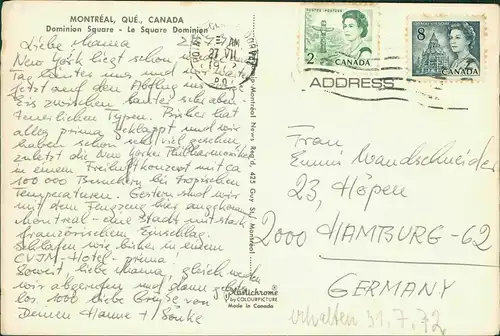 MONTRÉAL, QUÉ., CANADA
Dominion Square - Le Square Dominion
Liebe Mama
New York liegt schon
Tag hinter uns und wir
jetzt auf den Abflug ins
Eis zwischen lauter aben-
teuerlichen Typen. Bisher hat
alles prima geklappt und wir
haben schon viel gesehen,
zuletzt die New Yorker Philharmoniker
in einem Freiluftkonzert mit ca
100 000 Zuhörern bei tropischen
Temperaturen. Gestern sind wir
mit dem Flugzeug hier angekommen
Montreal - eine Stadt mit stark
französischem Einschlag.
Schlafen wie bisher in einem
CVJM-Hotel - prima!
Soweit, liebe Mama, gleich werden
wir abgerufen und dann geht's
los. 1000 liebe Grüsse von
Deinen Hanne + Sönke
Montréal News Reg'd, 425 Guy St., Montréal
Plastichrome ®
by COLOURPICTURE
Made in Canada
27
VII
POSTES POSTAGE
2
CANADA
8
CANADA
ADDRESS
Frau
Emmi Wandschneider
23, Höpen
2000 HAMBURG-62
GERMANY
erhalten 31.7.72